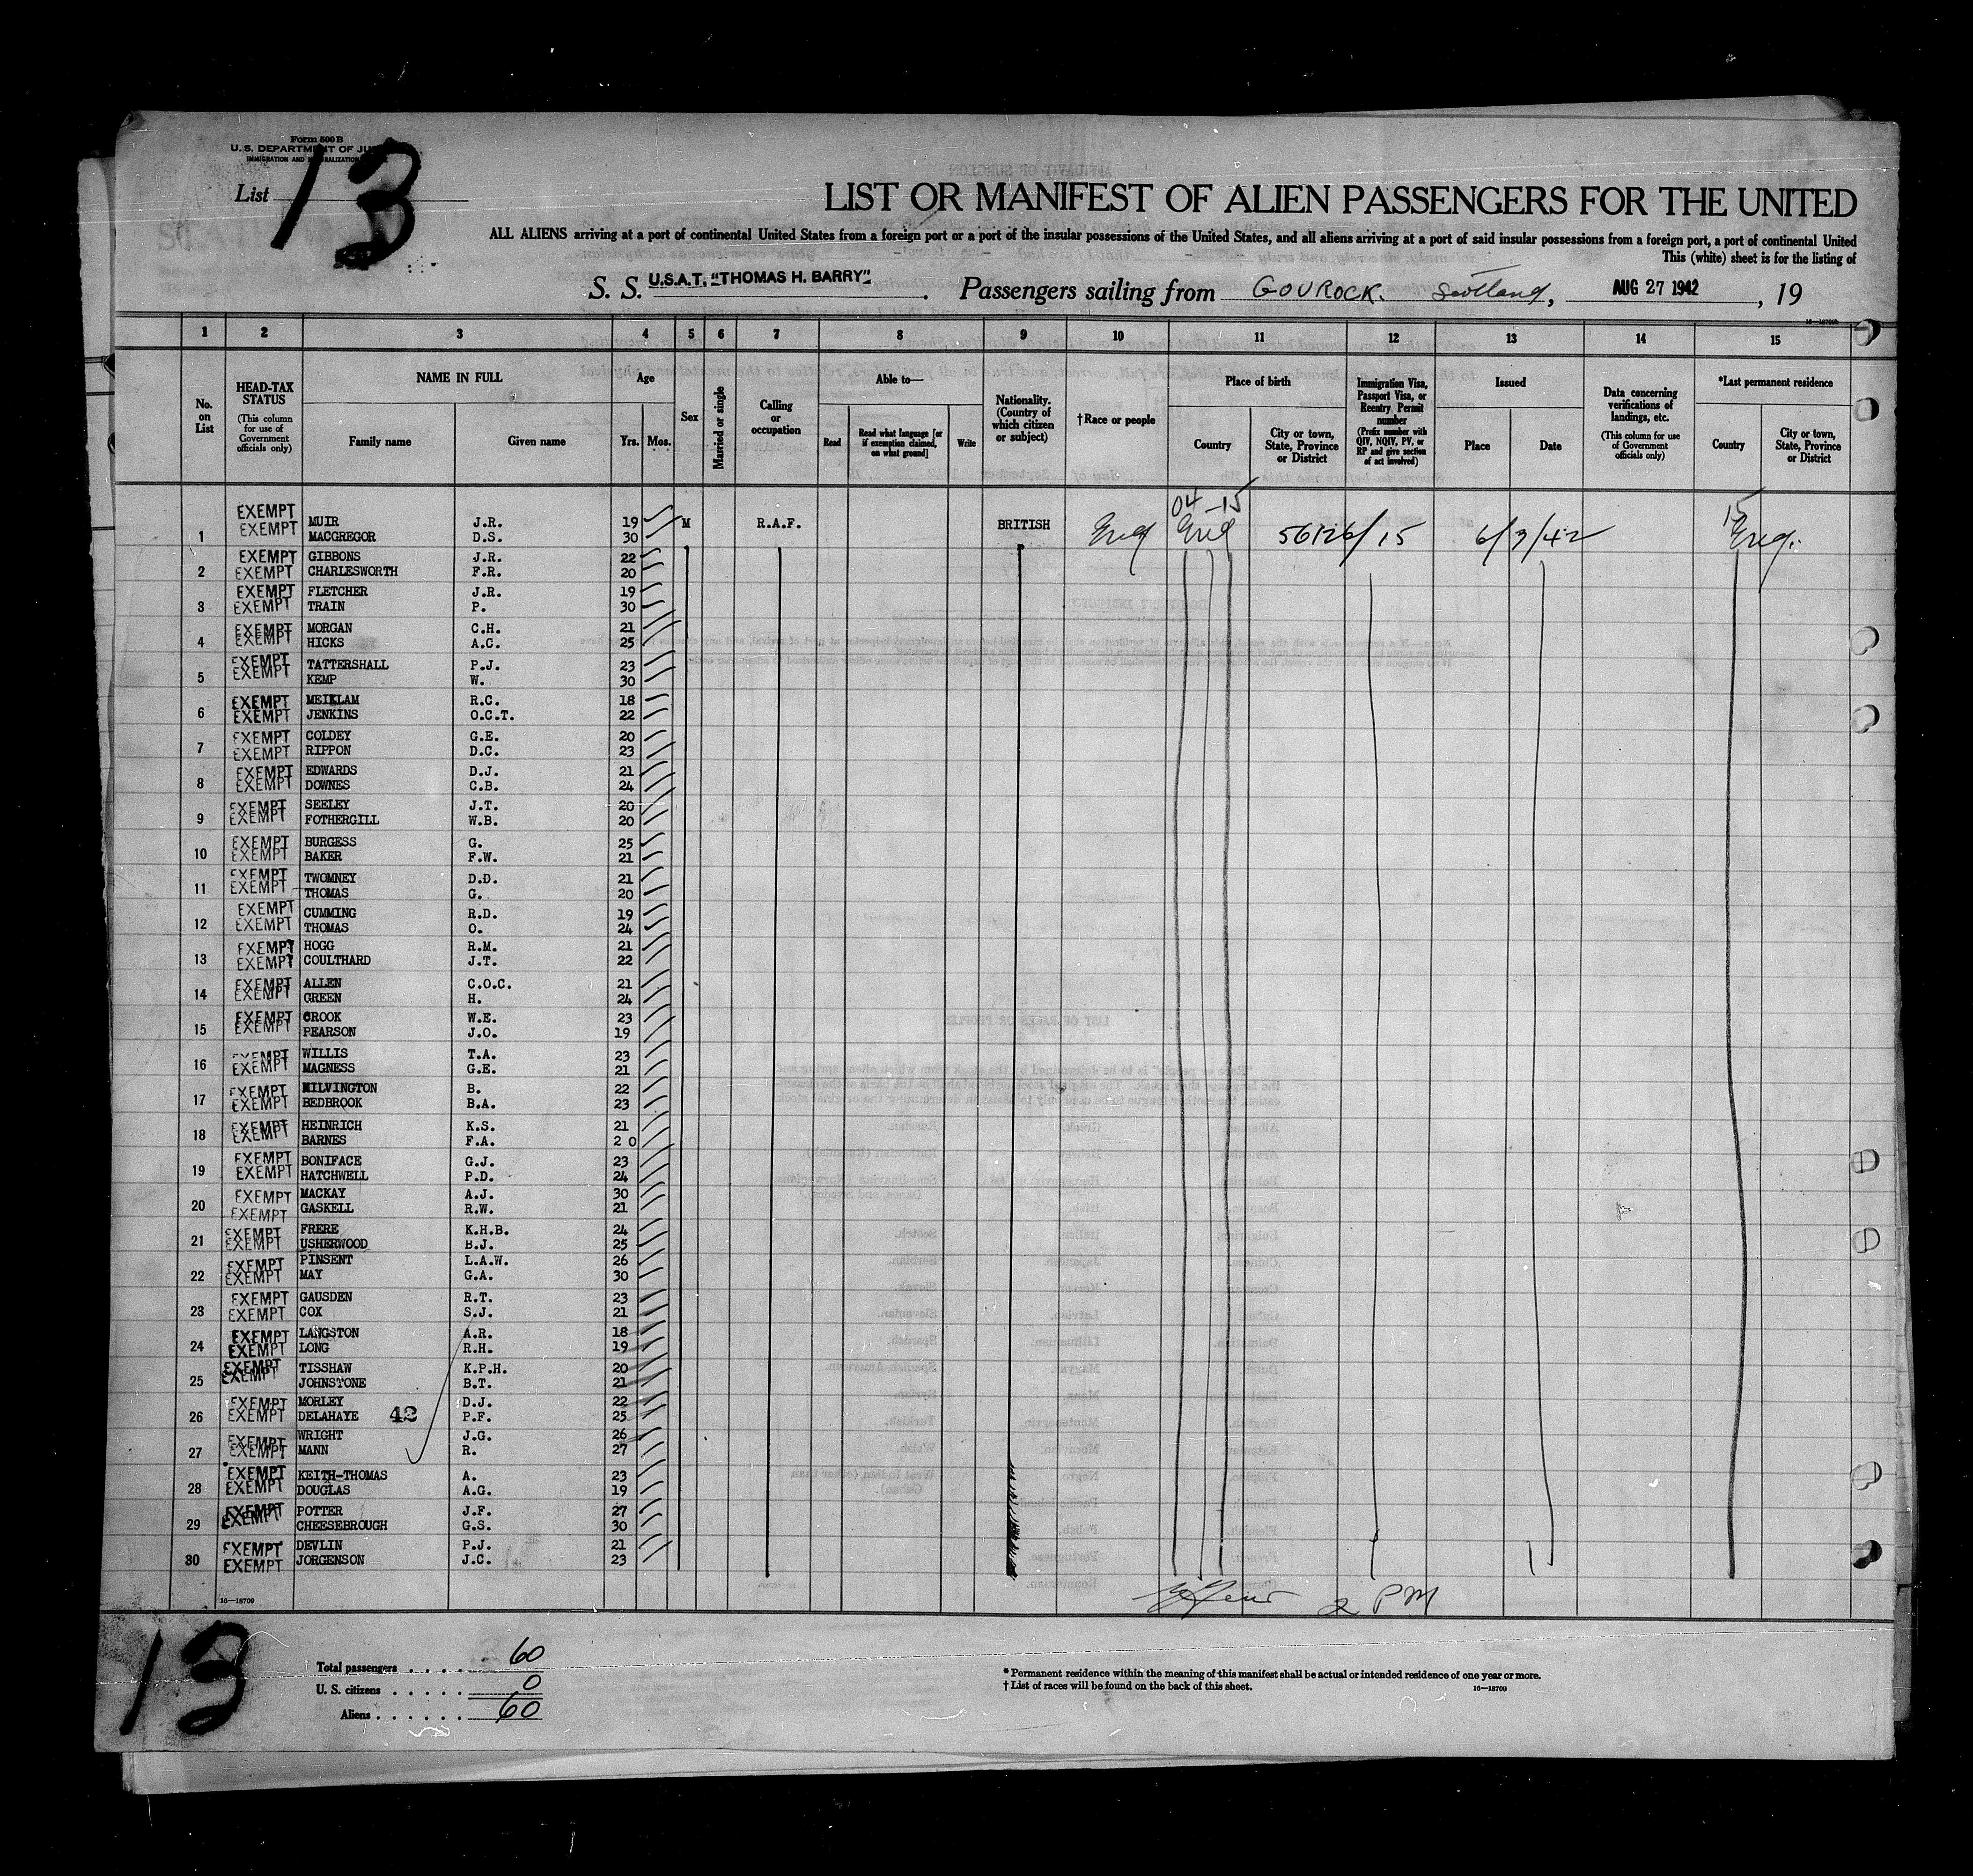 Form 500 B
U. S. DEPARTMENT OF JU
IMMIGRATION AND NATURALIZATION
List 13
LIST OR MANIFEST OF ALIEN PASSENGERS FOR THE UNITED
ALL ALIENS arriving at a port of continental United States from a foreign port or a port of the insular possessions of the United States, and all aliens arriving at a port of said insular possessions from a foreign port, a port of continental United
This (white) sheet is for the listing of
S. S. U.S.A.T. "THOMAS H. BARRY". Passengers sailing from GOUROCK. Scotland, AUG 27 1942, 19
16—18709
1 2 3 4 5 6 7 8 9 10 11 12 13 14 15
No. on List
HEAD-TAX STATUS (This column for use of Government officials only)
NAME IN FULL
Family name Given name
Age
Yrs. Mos.
Sex
Married or single
Calling or occupation
Able to—
Read Read what language [or if exemption claimed, on what ground] Write
Nationality. (Country of which citizen or subject)
†Race or people
Place of birth
Country City or town, State, Province or District
Immigration Visa, Passport Visa, or Reentry Permit number (Prefix number with QIV, NQIV, PV, or RP and give section of act involved)
Issued
Place Date
Data concerning verifications of landings, etc. (This column for use of Government officials only)
*Last permanent residence
Country City or town, State, Province or District
04 -15 15
EXEMPT MUIR J.R. 19 M R.A.F. BRITISH Eng Eng 56126/15 6/3/42 Eng.
1 EXEMPT MACGREGOR D.S. 30
EXEMPT GIBBONS J.R. 22
2 EXEMPT CHARLESWORTH F.R. 20
EXEMPT FLETCHER J.R. 19
3 EXEMPT TRAIN P. 30
EXEMPT MORGAN C.H. 21
4 EXEMPT HICKS A.C. 25
EXEMPT TATTERSHALL P.J. 23
5 EXEMPT KEMP W. 30
EXEMPT MEIKLAM R.C. 18
6 EXEMPT JENKINS O.C.T. 22
EXEMPT COLDEY G.E. 20
7 EXEMPT RIPPON D.C. 23
EXEMPT EDWARDS D.J. 21
8 EXEMPT DOWNES C.B. 24
EXEMPT SEELEY J.T. 20
9 EXEMPT FOTHERGILL W.B. 20
EXEMPT BURGESS G. 25
10 EXEMPT BAKER F.W. 21
EXEMPT TWOMNEY D.D. 21
11 EXEMPT THOMAS G. 20
EXEMPT CUMMING R.D. 19
12 EXEMPT THOMAS O. 24
EXEMPT HOGG R.M. 21
13 EXEMPT COULTHARD J.T. 22
EXEMPT ALLEN C.O.C. 21
14 EXEMPT GREEN H. 24
EXEMPT CROOK W.E. 23
15 EXEMPT PEARSON J.O. 19
EXEMPT WILLIS T.A. 23
16 EXEMPT MAGNESS G.E. 21
EXEMPT MILVINGTON B. 22
17 EXEMPT BEDBROOK B.A. 23
EXEMPT HEINRICH K.S. 21
18 EXEMPT BARNES F.A. 2 0
EXEMPT BONIFACE G.J. 23
19 EXEMPT HATCHWELL P.D. 24
EXEMPT MACKAY A.J. 30
20 EXEMPT GASKELL R.W. 21
EXEMPT FRERE K.H.B. 24
21 EXEMPT USHERWOOD B.J. 25
EXEMPT PINSENT L.A.W. 26
22 EXEMPT MAY G.A. 30
EXEMPT GAUSDEN R.T. 23
23 EXEMPT COX S.J. 21
EXEMPT LANGSTON A.R. 18
24 EXEMPT LONG R.H. 19
EXEMPT TISSHAW K.P.H. 20
25 EXEMPT JOHNSTONE B.T. 21
EXEMPT MORLEY D.J. 22
26 EXEMPT DELAHAYE 42 P.F. 25
EXEMPT WRIGHT J.G. 26
27 EXEMPT MANN R. 27
EXEMPT KEITH-THOMAS A. 23
28 EXEMPT DOUGLAS A.G. 19
EXEMPT POTTER J.F. 27
29 EXEMPT CHEESEBROUGH G.S. 30
EXEMPT DEVLIN P.J. 21
30 EXEMPT JORGENSON J.C. 23
2 PM
16—18709
13
Total passengers . . . . . 60
U. S. citizens . . . . . . 0
Aliens . . . . . . 60
* Permanent residence within the meaning of this manifest shall be actual or intended residence of one year or more.
† List of races will be found on the back of this sheet.
16—18709